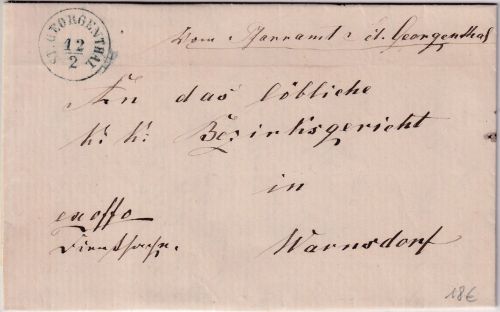 ST. GEORGENTHAL
12/2
Vom Pfarramt St. Georgenthal
An das löbliche
k. k. Bezirksgericht
in
ex offo
Dienstsache.
Warnsdorf
18€